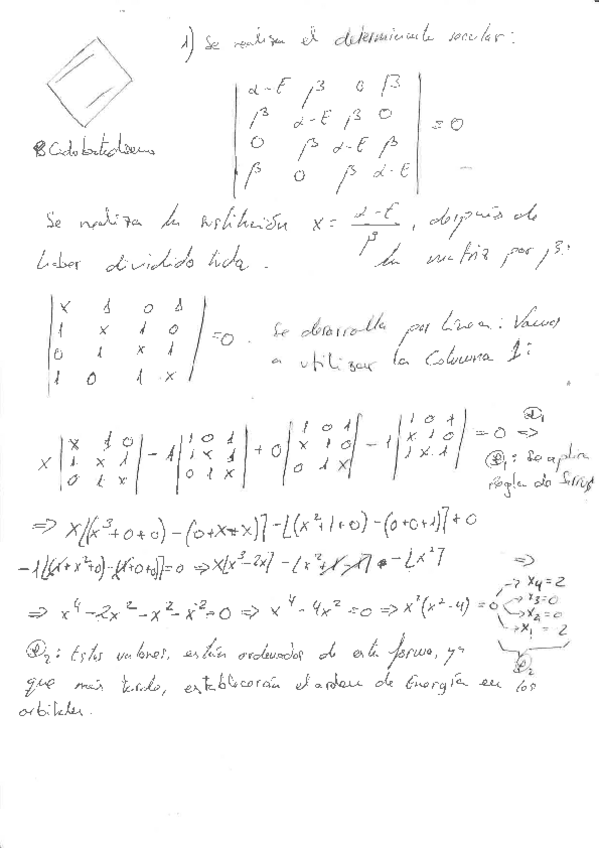 1) Se realiza el determinante secular:
| α-E β 0 β |
| β α-E β 0 | = 0
| 0 β α-E β |
| β 0 β α-E |
Ciclobutadieno
Se realiza la sustitución x = (α-E)/β, después de
haber dividido toda la matriz por β:
| x 1 0 1 |
| 1 x 1 0 | = 0. Se desarrolla por línea: Vamos
| 0 1 x 1 | a utilizar la Columna 1:
| 1 0 1 x |
x | x 1 0 | - 1 | 1 0 1 | + 0 | 1 0 1 | - 1 | 1 0 1 | = 0 ⇒ ①
| 1 x 1 | | 1 x 1 | | x 1 0 | | x 1 0 |
| 0 1 x | | 0 1 x | | 0 1 x | | 1 x 1 |
①: Se aplica
Regla de Sarrus
⇒ x[(x³+0+0) - (0+x+x)] - [(x²+1+0) - (0+0+1)] + 0
-1[(1+x²+0) - (1+0+0)] = 0 ⇒ x[x³-2x] - [x²+1-1] - [x²] ⇒
⇒ x⁴-2x²-x²-x² = 0 ⇒ x⁴-4x² = 0 ⇒ x²(x²-4) = 0
x₄ = 2
x₃ = 0
x₂ = 0
x₁ = -2
②
②: Estos valores, están ordenados de esta forma, ya
que más tarde, establecerán el orden de Energía en los
orbitales.